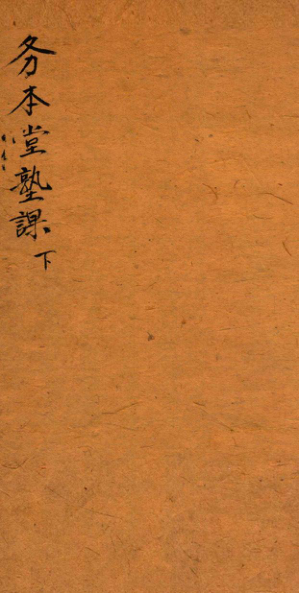 务本堂塾課 下